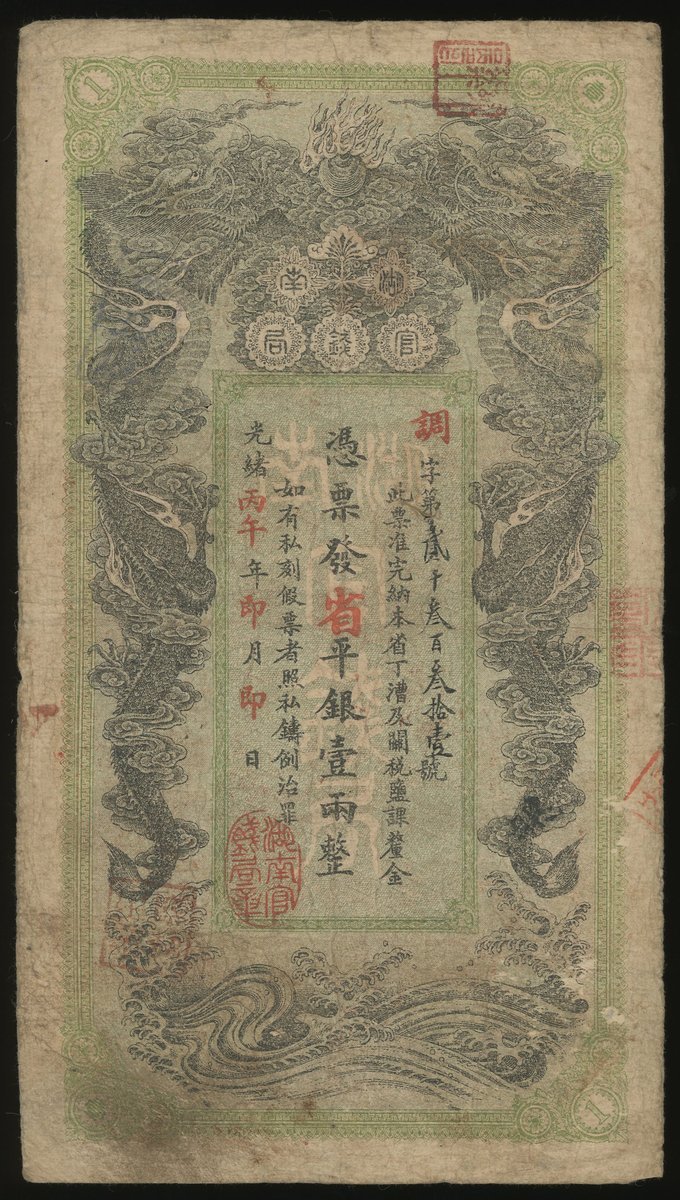 1
壹
湖南
官錢局
調字第貳千叁百叁拾壹號
此票准完納本省丁漕及關税鹽課釐金
憑票發省平銀壹兩整
如有私刻假票者照私鑄例治罪
光緒丙午年印月印日
湖南官
錢局章
1